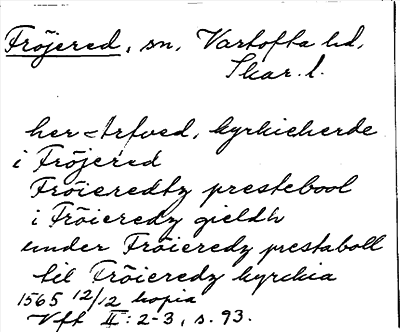 Fröjered, sn, Vartofta hd,
Skar. l.
her Arfved, kyrkieherde
i Fröjered
Fröieredtz prestebool
i Fröieredz gieldh
under Fröieredz prestaboll
til Fröieredz kyrckia
1565 12/12 kopia
Vft II: 2-3, s. 93.